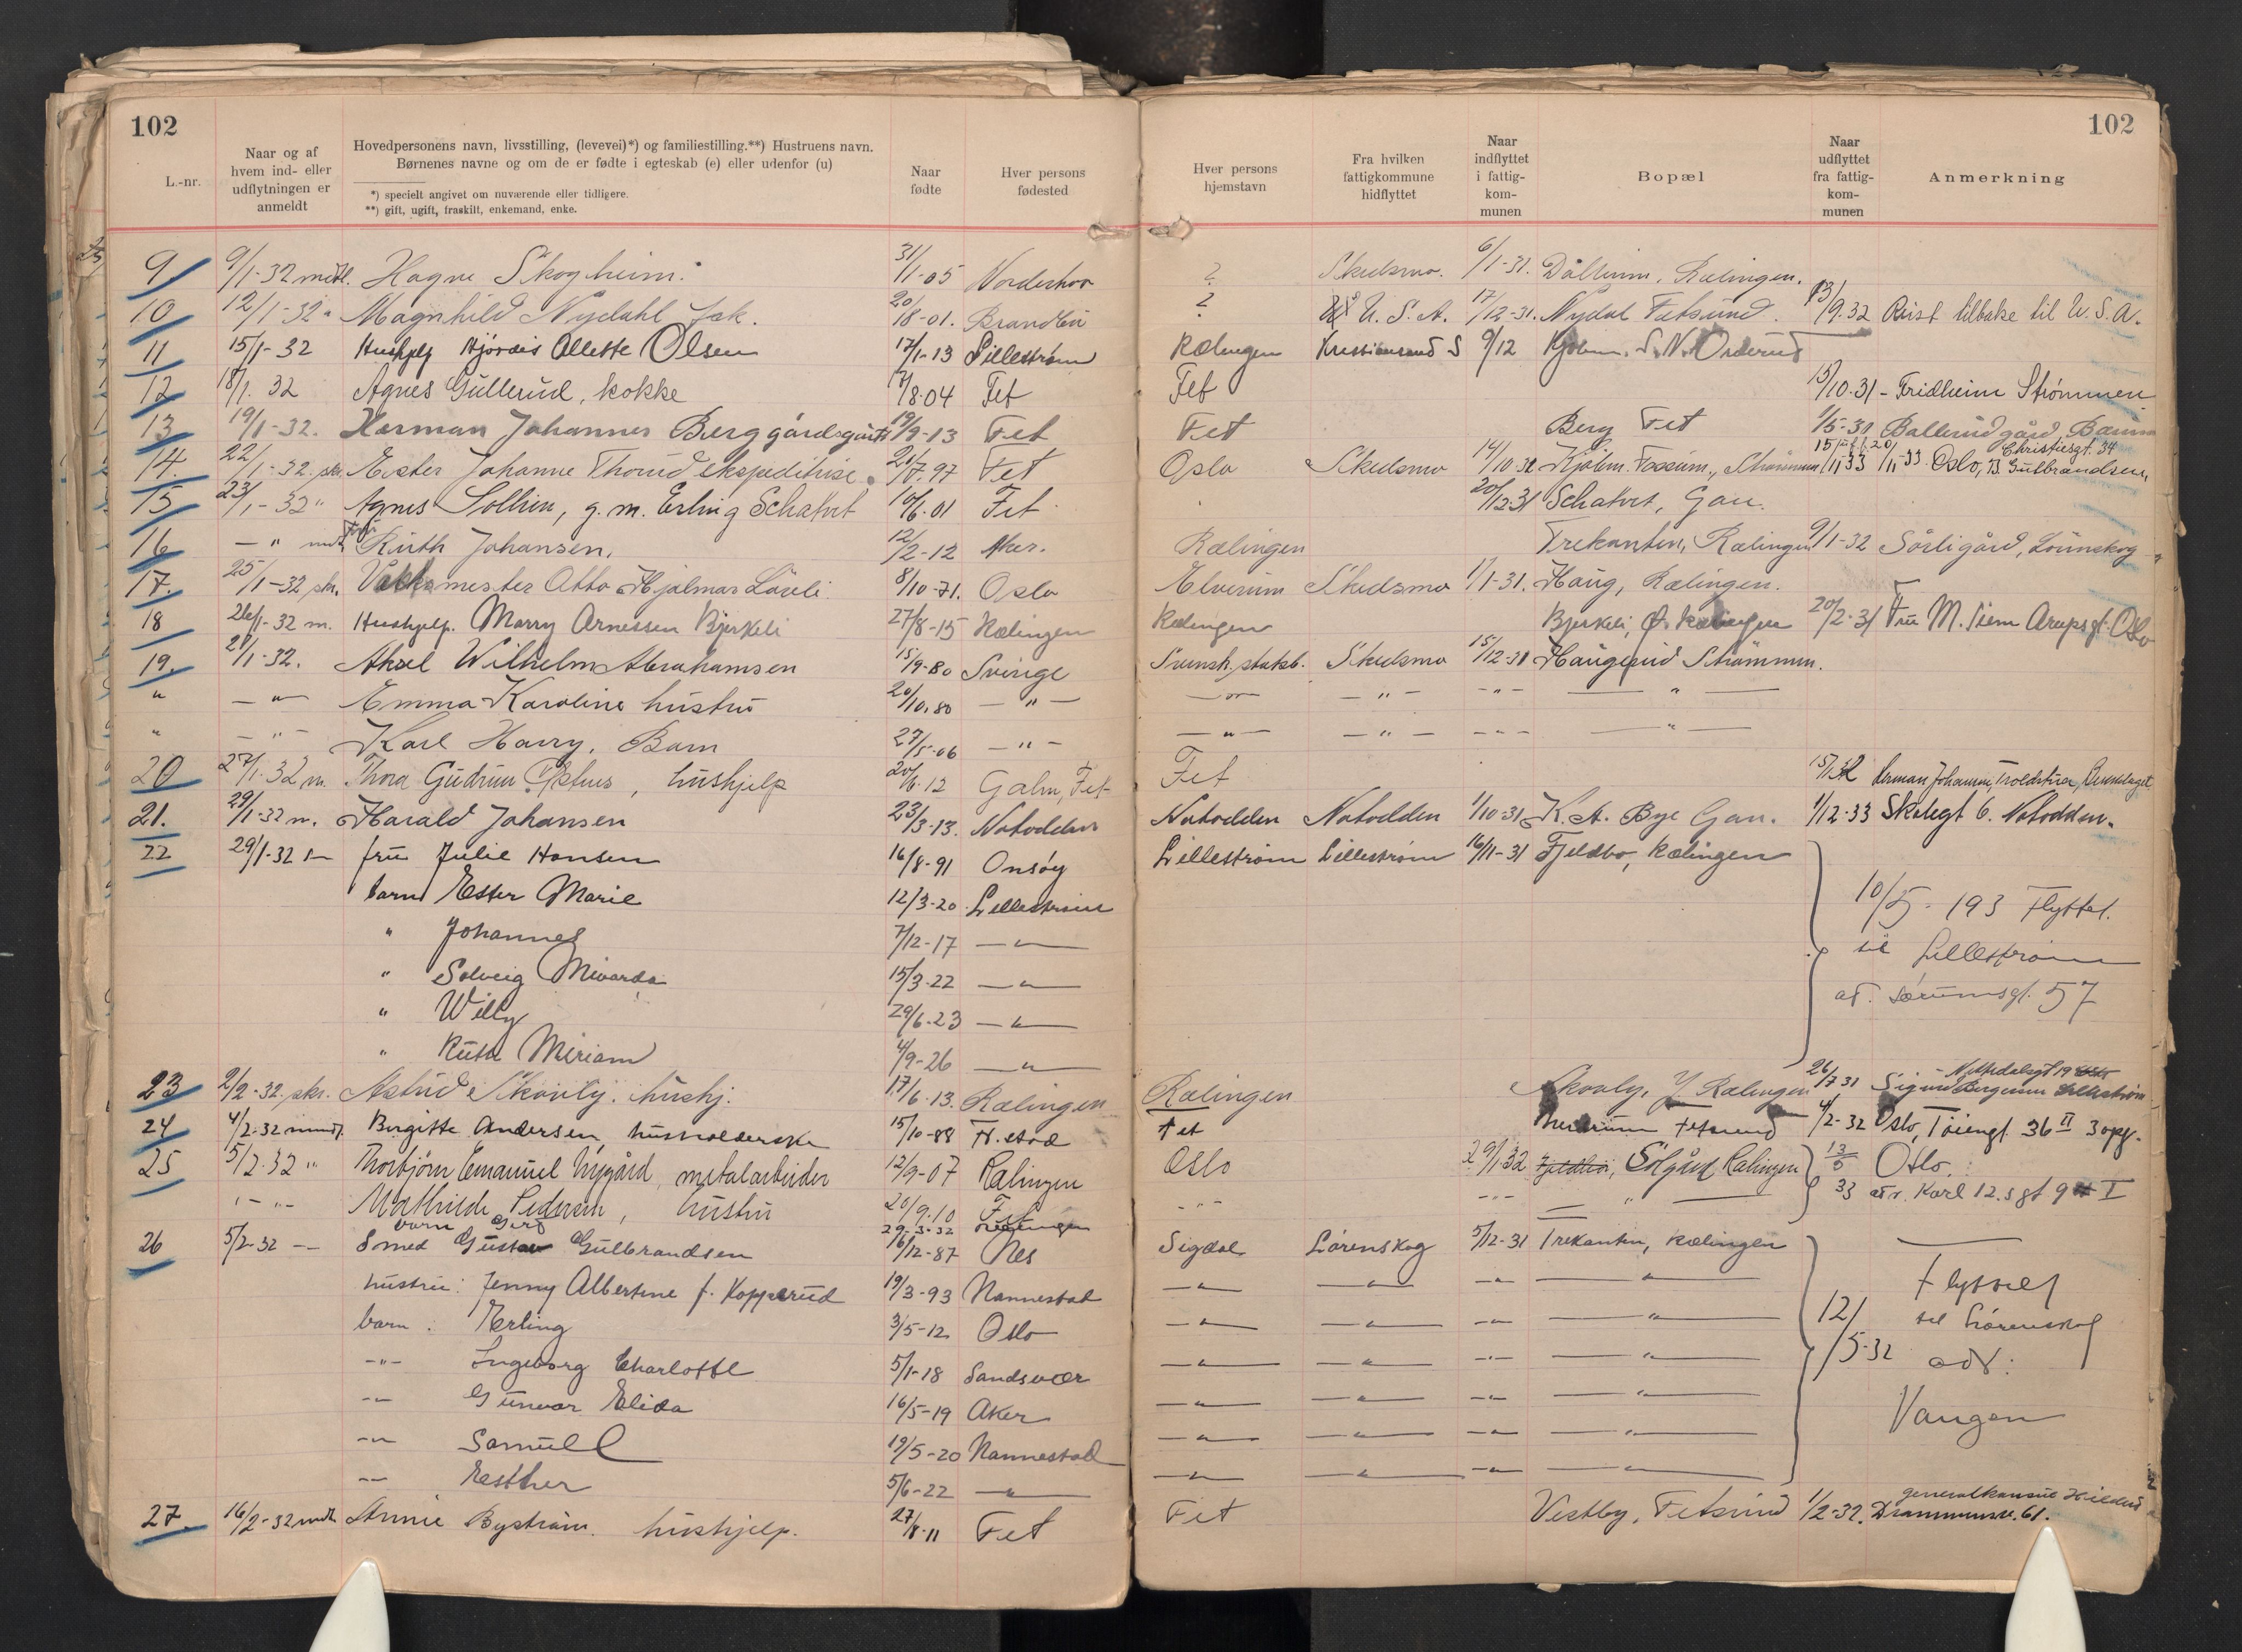 102
102
L.-nr.
Naar og af hvem ind- eller udflytningen er anmeldt
Hovedpersonens navn, livsstilling, (levevei)*) og familiestilling.**) Hustruens navn.
Børnenes navne og om de er fødte i egteskab (e) eller udenfor (u)
*) specielt angivet om nuværende eller tidligere.
**) gift, ugift, fraskilt, enkemand, enke.
Naar fødte
Hver persons fødested
Hver persons hjemstavn
Fra hvilken fattigkommune hidflyttet
Naar indflyttet i fattig-kom-munen
Bopæl
Naar udflyttet fra fattig-kom-munen
Anmerkning
9 9/1-32 mdtl. Hagne Skogheim. 31/1-05 Norderhov ? Skedsmo. 6/1-31. Dalheim, Rælingen.
10 12/1-32 " Magnhild Nydahl frk. 20/8-01. Brandbu ? U.S.A. 17/12-31. Nydal Fetsund. 13/9.32 Reist tilbake til U.S.A.
11 15/1-32 Hushjelp Hjørdis Ollette Olsen 17/1-13 Lillestrøm Rælingen Kristiansand S 9/12 Kjøbm. S. N. Orderud
12 18/1. 32 Agnes Gullerud, kokke 7/8.04 Fet Fet 15/10.31 - Fridheim Strømmen
13 19/1-32. Herman Johannes Berg gårdsgutt 19/9-13 Fet Fet Berg Fet 1/5-31 Ballerud gård, Bærum
14 22/1-32. skr. Ester Johanne Thorud ekspeditrise. 21/7.97 Fet Oslo Skedsmo 14/10 31 Kjøbm. Fossum, Strømmen 15/11 33 Oslo, B. Gulbrandsen, Christiesgt. 34
15 23/1-32 " Agnes Solhim, g. m. Erling Schatvet 10/6.01 Fet 20/12.31 Schatvet, Gan.
16 — " — mdtl. Frk Ruth Johansen, 12/2-12 Aker. Rælingen Trekanten, Rælingen 9/1-32 Sørligård, Lørenskog
17. 25/1-32 skr. Verksmester Otto Hjalmar Løveli 8/10-71. Oslo Elverum Skedsmo 1/1-31. Haug, Rælingen.
18 26/1-32 m. Hushjelp. Marry Arnessen Bjerkeli 27/8-15 Rælingen Rælingen Bjerkeli, Ø. Rælingen 20/2-31 Fru M. Siem Arupsgt. Oslo
19. 27/1-32. Aksel Wilhelm Abrahamsen 15/9-80 Sverige Svensk statsb. Skedsmo 15/12-31 Haugerud Strømmen.
" — " — Emma Karoline hustru 20/10.80 — " — — " — — " — — " — — " —
" — " — Karl Harry. Barn 27/5-06 — " — — " — — " — — " — — " —
20 27/1.32 m. Thora Gudrun, hushjelp 20/6.12 Galn, Fet Fet 15/1 32 Herman Johansen, Troldstua,
21. 29/1-32 m. Harald Johansen 23/3-13. Notodden Notodden Notodden 1/10-31 K. A. Bye Gan. 1/12-33 Skolegt 6. Notodden.
22 29/1-32 fru Julie Hansen 16/8-91 Onsøy Lillestrøm Lillestrøm 16/11-31 Fjeldbo, Rælingen
barn Ester Marie 12/3-20 Lillestrøm 10/5-193 Flyttet
" Johannes 7/12-17 — " — til Lillestrøm
" Solveig Mivarda 15/3-22 — " — ad. Sørumsgt. 57
" Willy 29/6.23 — " —
" Ruth Miriam 4/9-26 — " —
23 2/2-32. skr. Astrid Skovly. hushj. 17/6-13. Rælingen Rælingen Skovly, Y Rælingen 26/7 31 Sigurd Bergersen
24 4/2-32 mundtl. Birgitte Andersen, husholderske 15/10-88 Fr.stad Fet Fetsund 4/2-32 Oslo, Tøiengt. 36 II 3 opg.
25 5/2-32 " Thorbjørn Emanuel Nygård, metalarbeider 12/9-07 Rælingen Oslo 29/1.32 Solgård Rælingen 13/5 33 Oslo.
" — " — Mathilde Pedersen, hustru 20/9.10 Fet - " - - " - — " — adr. Karl 12.s gt 9 I
barn Gerd 29-3-32 Rælingen
26 5/2-32 — Smed Gustav Gulbrandsen 16/12-87 Nes Sigdal Lørenskog 5/12-31 Trekanten, Rælingen
hustru: Jenny Albertine f. Kopperud 19/3-93 Nannestad — " — — " — — " — — " — Flyttet
barn: Erling 3/5-12 Oslo — " — — " — — " — — " — 12/5-32 til Lørenskog
— " — Ingeborg Charlotte 5/1-18 Sandsvær — " — — " — — " — — " — adr:
— " — Gunvor Elida 16/5-19 Aker — " — — " — — " — — " — Vangen
— " — Samuel 19/5-20 Nannestad — " — — " — — " — — " —
— " — Esther 5/6-22 — " — — " — — " — — " — — " —
27. 16/2-32 mdtl Annie Bystrøm. hushjelp. 27/8-11 Fet Fet Vestby, Fetsund 1/2-32. generalkonsul Drammensv. 61.